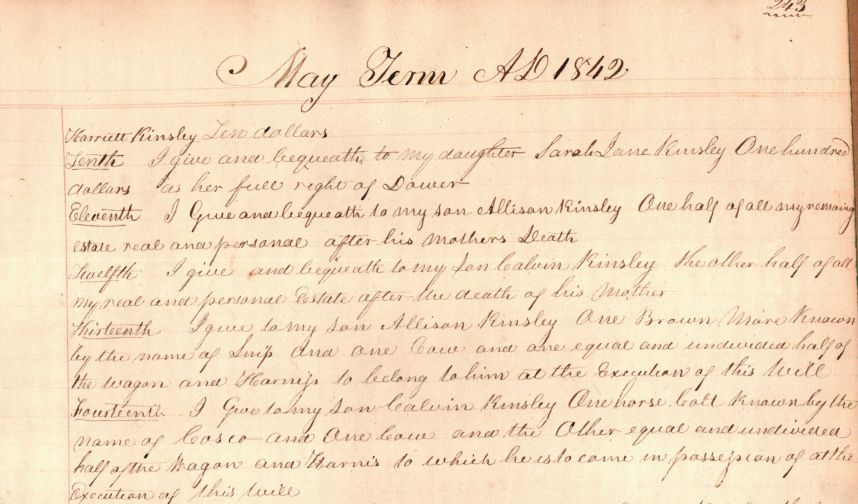 243
May Term AD 1842
Harriett Kinsley Ten dollars
Tenth I give and bequeath to my daughter Sarah Jane Kinsley One hundred
dollars as her full right of Dower
Eleventh I Give and bequeath to my son Allison Kinsley One half of all my remaing
estate real and personal after his Mothers Death
Twelfth I give and bequeath to my Son Calvin Kinsley the other half of all
my real and personal Estate after the death of his Mother
Thirteenth I give to my son Allison Kinsley One Brown Mare Known
by the name of Snip and one Cow and one equal and undivided half of
the wagon and Harniss to belong to him at the Execution of this Will
Fourteenth I Give to my Son Calvin Kinsley One horse Colt Known by the
name of Cosco and One Cow and the Other equal and undivided
half of the Wagon and Harnis to which he is to come in possession of at the
Execution of this Will